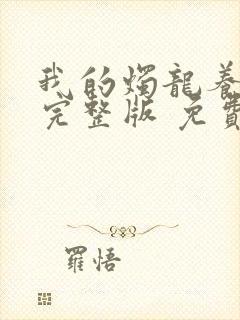 我的燭龍養
完整版 免費
羅悟